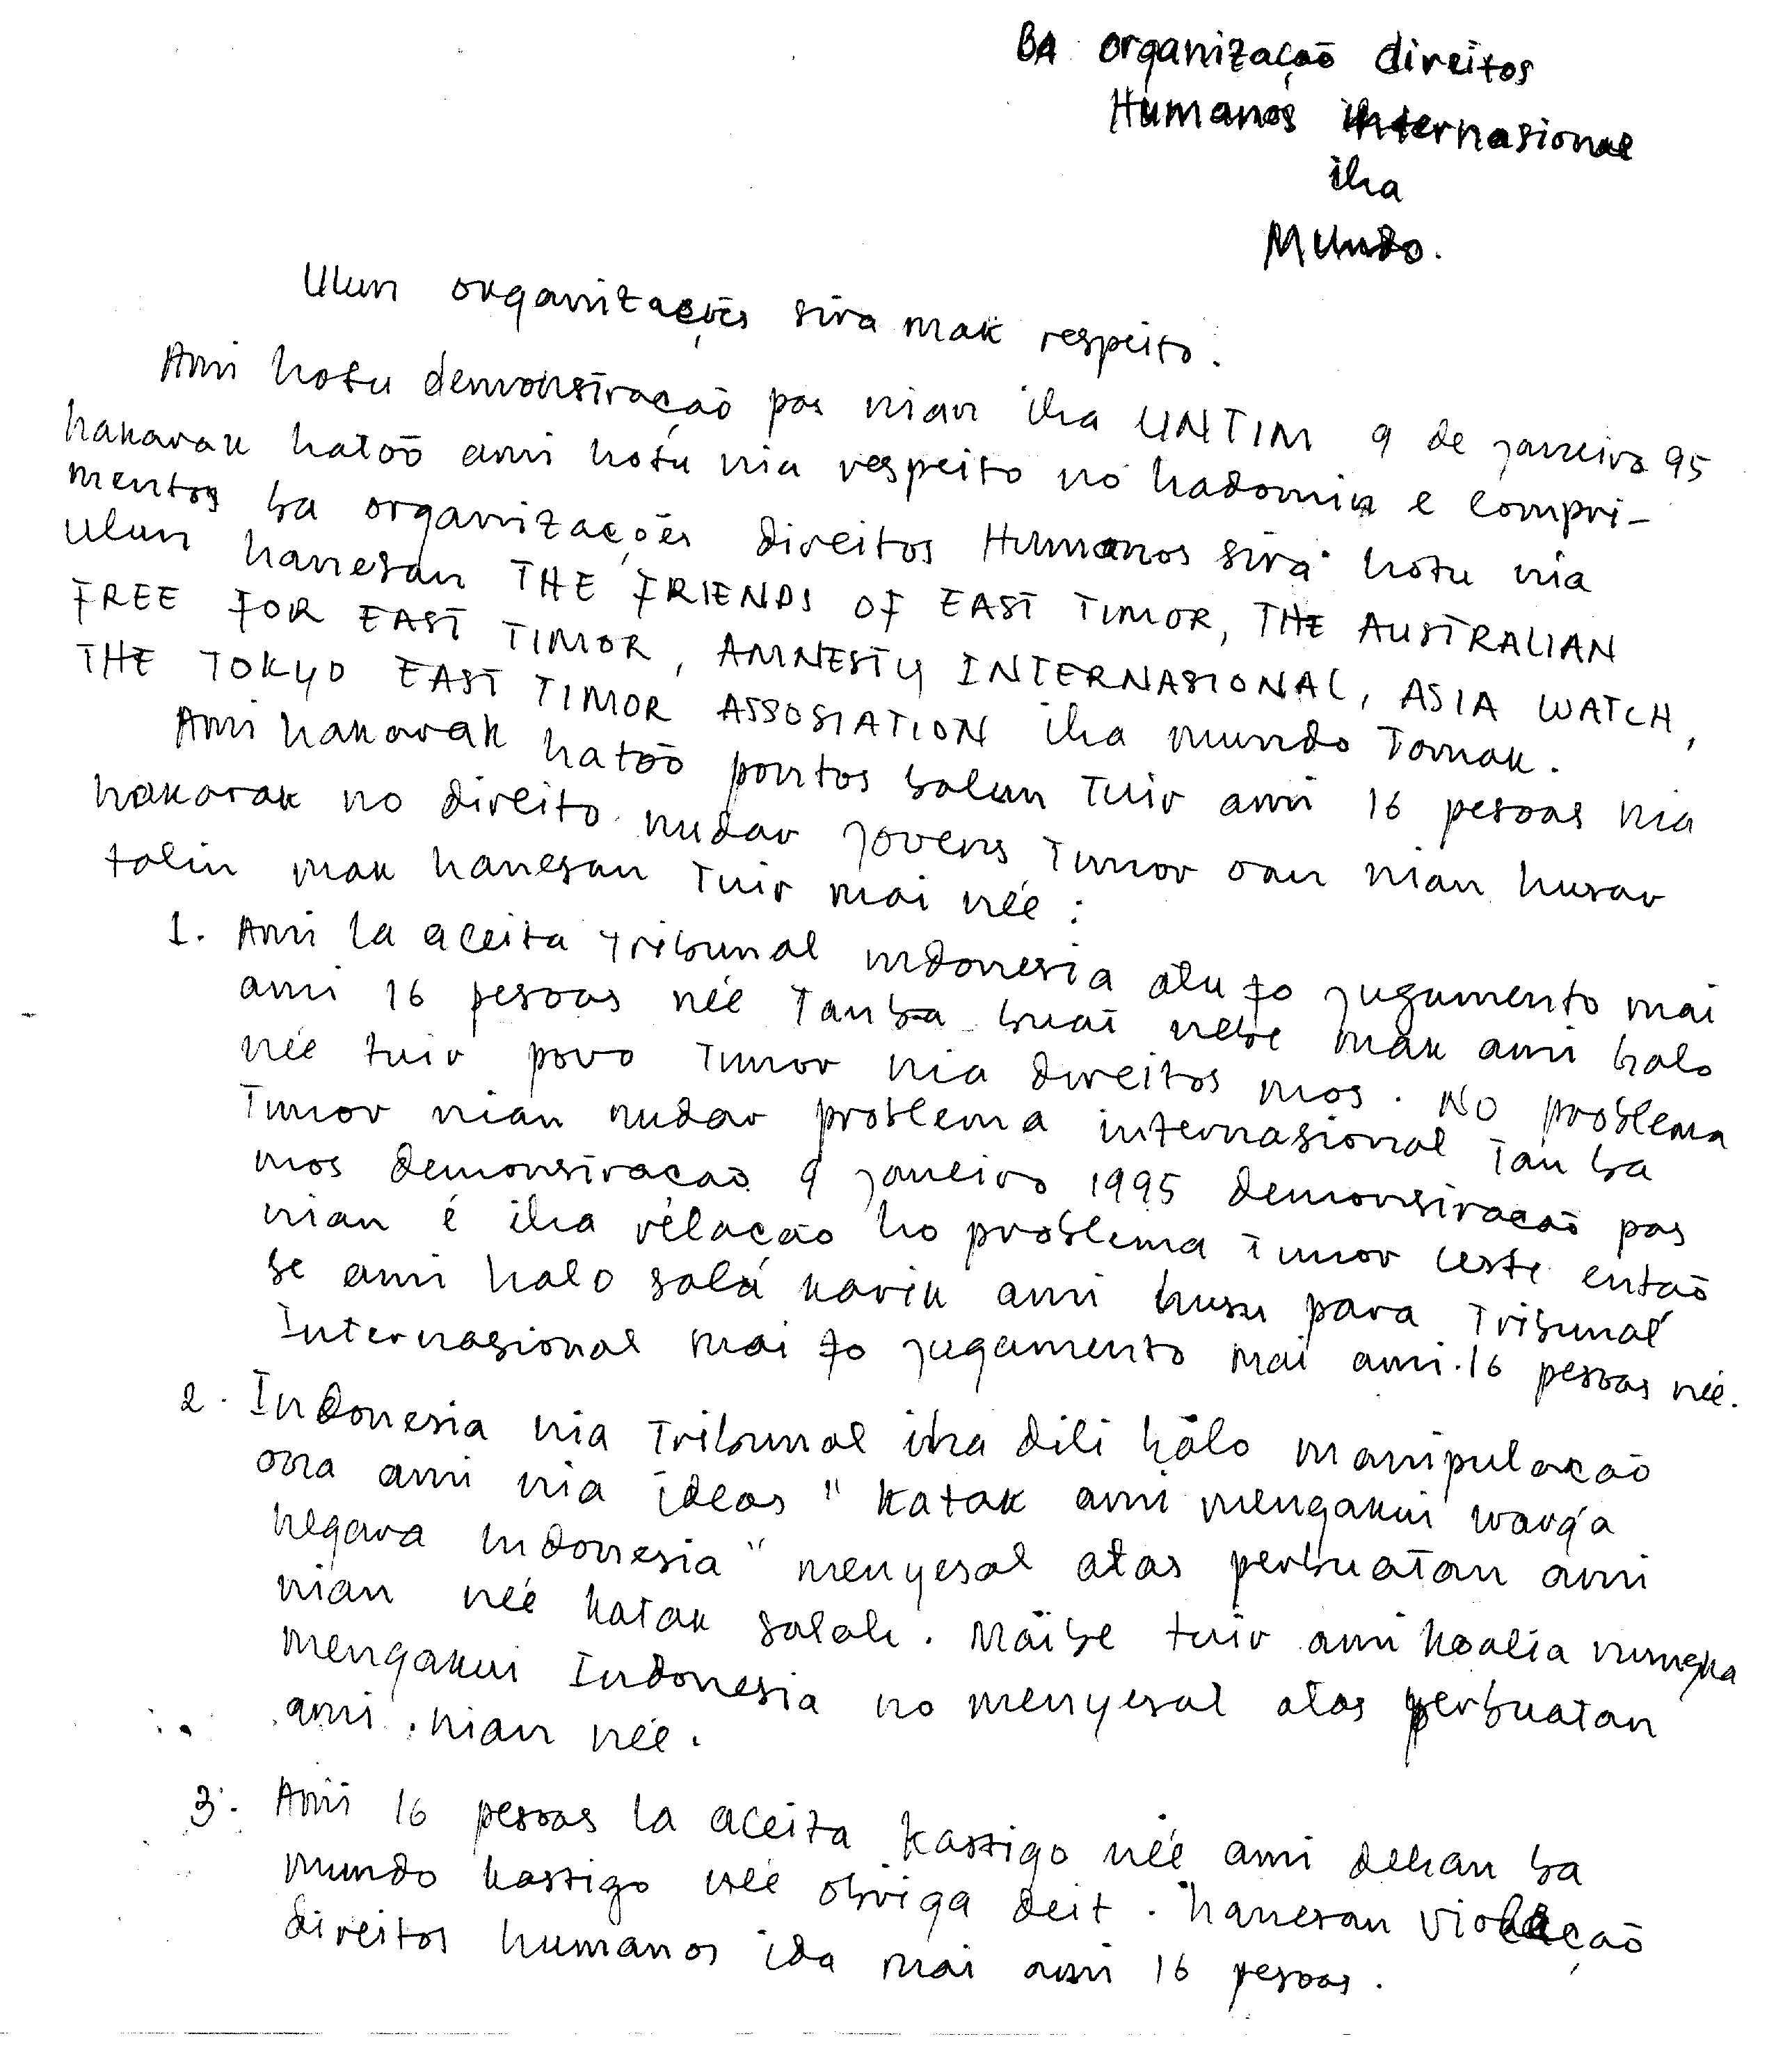 BA organizaçaõ direitos
Humanos internasional
iha
Mundo.
Ulun organizações sira mak respeito.
Ami hotu demonstraçaõ pas nian iha UNTIM 9 de janeiro 95
hakarak hatoõ ami hotu nia respeito nó hadomin e compri-
mentos ba organizações direitos Humanos sira hotu nia
ulun hanesan THE FRIENDS OF EAST TIMOR, THE AUSTRALIAN
FREE FOR EAST TIMOR, AMNESTY INTERNASIONAL, ASIA WATCH,
THE TOKYO EAST TIMOR ASSOSIATION iha mundo Tomak.
Ami hakarak hatoõ pontos balun Tuir ami 16 pesoas nia
hakarak no direito nudar jovens Timor oan nian husar
talin mak hanesan Tuir mai neé :
1. Ami la aceita Tribunal indonesia atu fo jugamento mai
ami 16 pesoas neé Tanba buat nebe mak ami halo
neé tuir povo Timor nia direitos mos. No problema
Timor nian nudar problema internasional Tan ba
mos demonstracaõ 9 janeiro 1995 demonstracaõ pas
nian é iha rélacaõ ho problema Timor leste entaõ
se ami halo salá karik ami husu para Tribunal
Internasional mai fo jugamento mai ami. 16 pesoas neé.
2. Indonesia nia Tribunal iha dili halo manipulacaõ
ona ami nia ideas " Katak ami mengakui warga
negara indonesia" menyesal atas perbuatan ami
nian neé katak salah. Maibe tuir ami koalia nunuka
mengakui Indonesia no menyesal atas perbuatan
ami nian neé.
3. Ami 16 pesoas la aceita kastigo neé ami dehan ba
mundo kastigo neé obriga deit. hanesan violaçaõ
direitos humanos ida mai ami 16 pesoas.